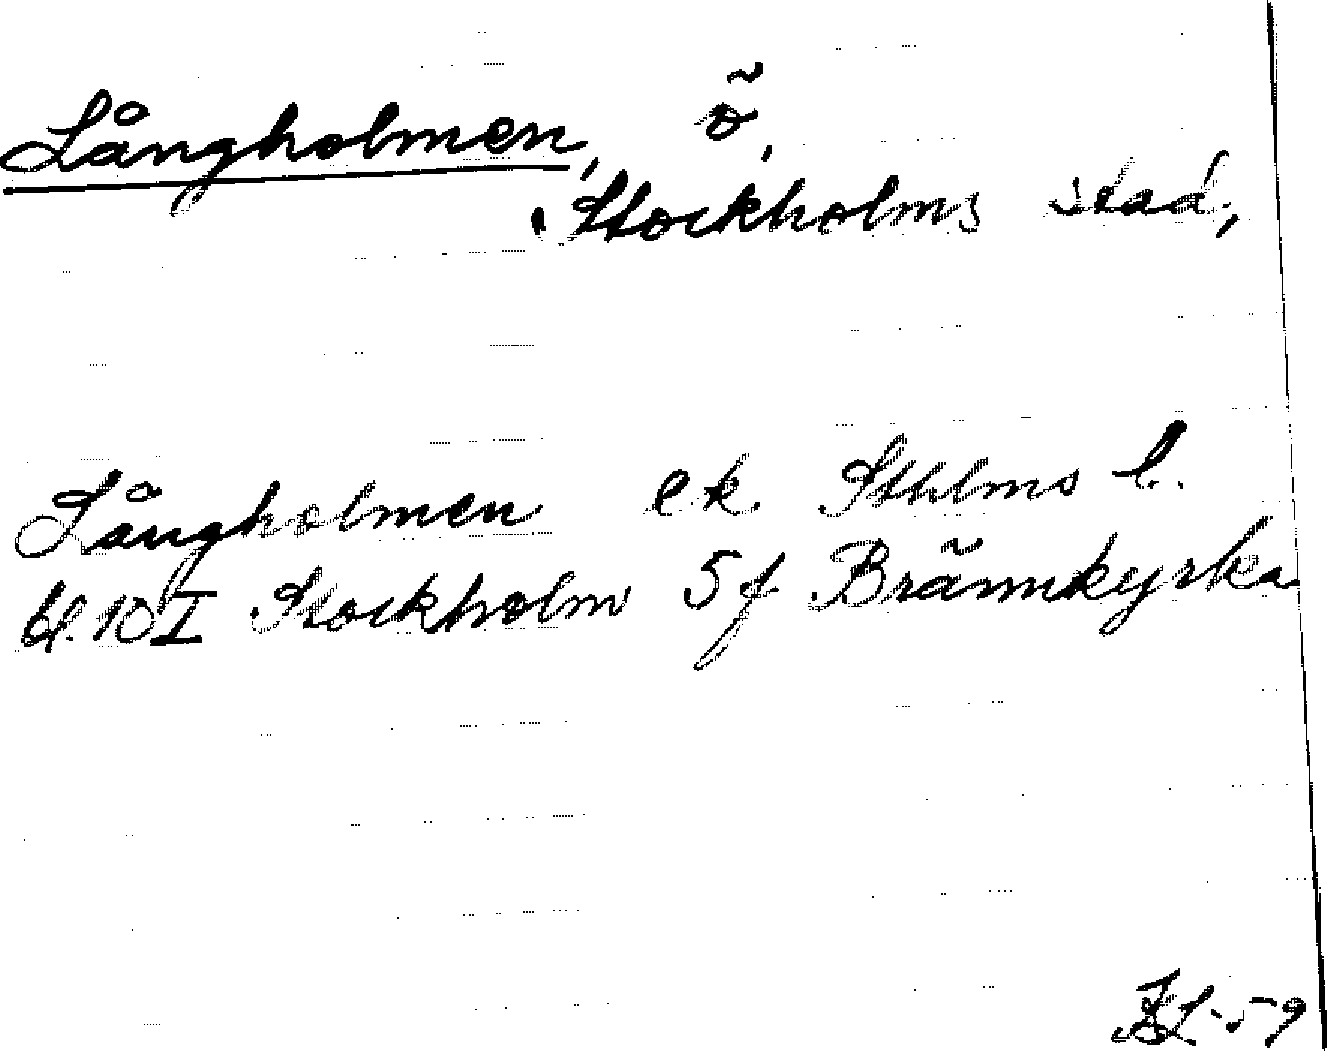 Långholmen, ö,
Stockholms stad,
Långholmen ek. Sthlms l.
bl. 10 I Stockholm 5 f Brännkyrka
-59